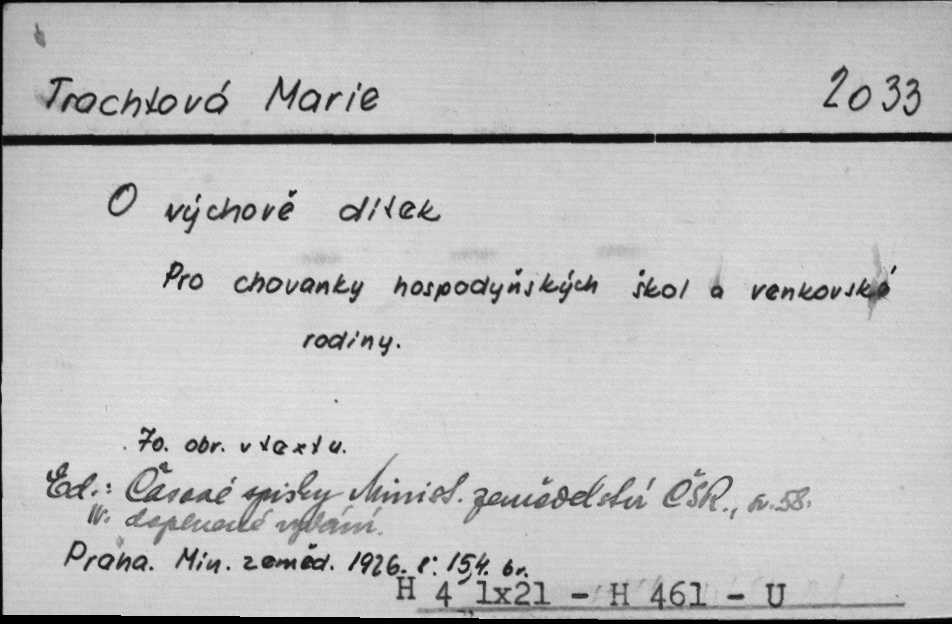 Trachtová Marie 2033
O výchově dítek
Pro chovanky hospodyňských škol a venkovské
rodiny.
70. obr. v textu.
Ed.: Časové spisky Minist. zemědělství ČSR., sv. 58.
IV. doplněné vydání.
Praha. Min. zeměd. 1926. s: 154. br.
H 4 1x21 - H 461 - U